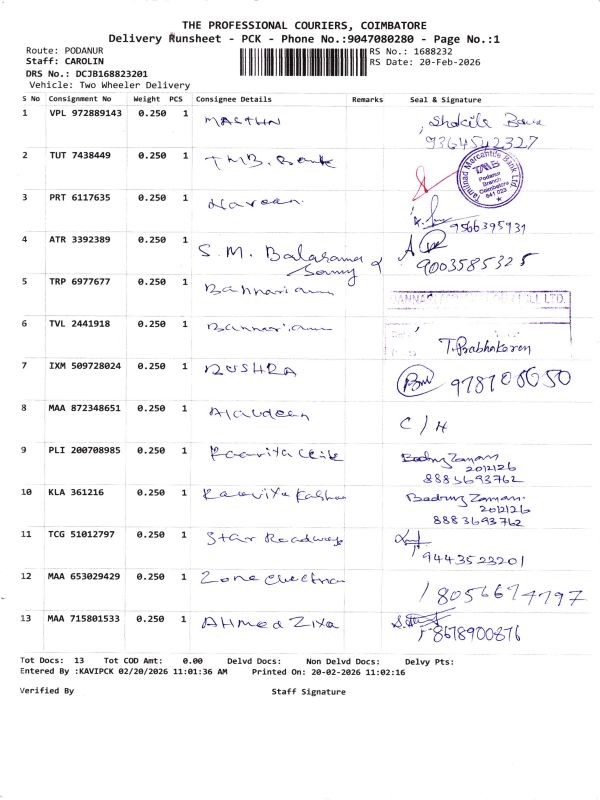 THE PROFESSIONAL COURIERS, COIMBATORE
Delivery Runsheet - PCK - Phone No.:9047080280 - Page No.:1
Route: PODANUR RS No.: 1688232
Staff: CAROLIN RS Date: 20-Feb-2026
DRS No.: DCJB168823201
Vehicle: Two Wheeler Delivery
S No Consignment No Weight PCS Consignee Details Remarks Seal & Signature
1 VPL 972889143 0.250 1 MASTHN Shakila
9364542327
2 TUT 7438449 0.250 1 TMB. Bank Tamilnad Mercantile Bank Ltd. TMB Podanur Branch Coimbatore 641 023
3 PRT 6117635 0.250 1 Naveen
9566395931
4 ATR 3392389 0.250 1 S.M. Balasama
Samy 9003585325
5 TRP 6977677 0.250 1 Bannariamm
6 TVL 2441918 0.250 1 Bannariamm T. Prabhakaran
7 IXM 509728024 0.250 1 BUSHRA
8 MAA 872348651 0.250 1 Alaudeen C/H
9 PLI 200708985 0.250 1 Kaaviya Badruz Zaman
20/2/26
8883693762
10 KLA 361216 0.250 1 Kaaviya Badruz Zaman.
20/2/26
8883693762
11 TCG 51012797 0.250 1 Star Roadways
9443523201
12 MAA 653029429 0.250 1 Zone electra 8056674797
13 MAA 715801533 0.250 1 AHMed ZiYa 8678900876
Tot Docs: 13 Tot COD Amt: 0.00 Delvd Docs: Non Delvd Docs: Delvy Pts:
Entered By :KAVIPCK 02/20/2026 11:01:36 AM Printed On: 20-02-2026 11:02:16
Verified By Staff Signature